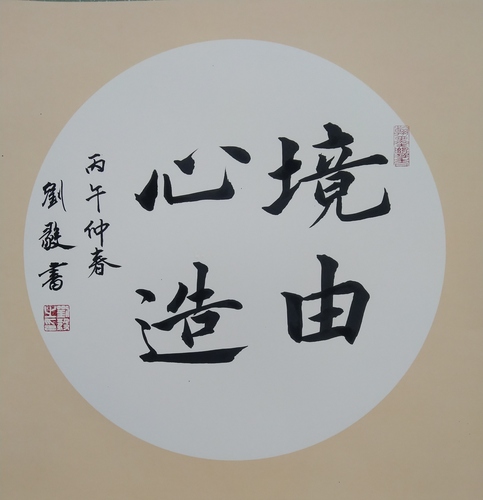 境由
心造
丙午仲春
劉毅書